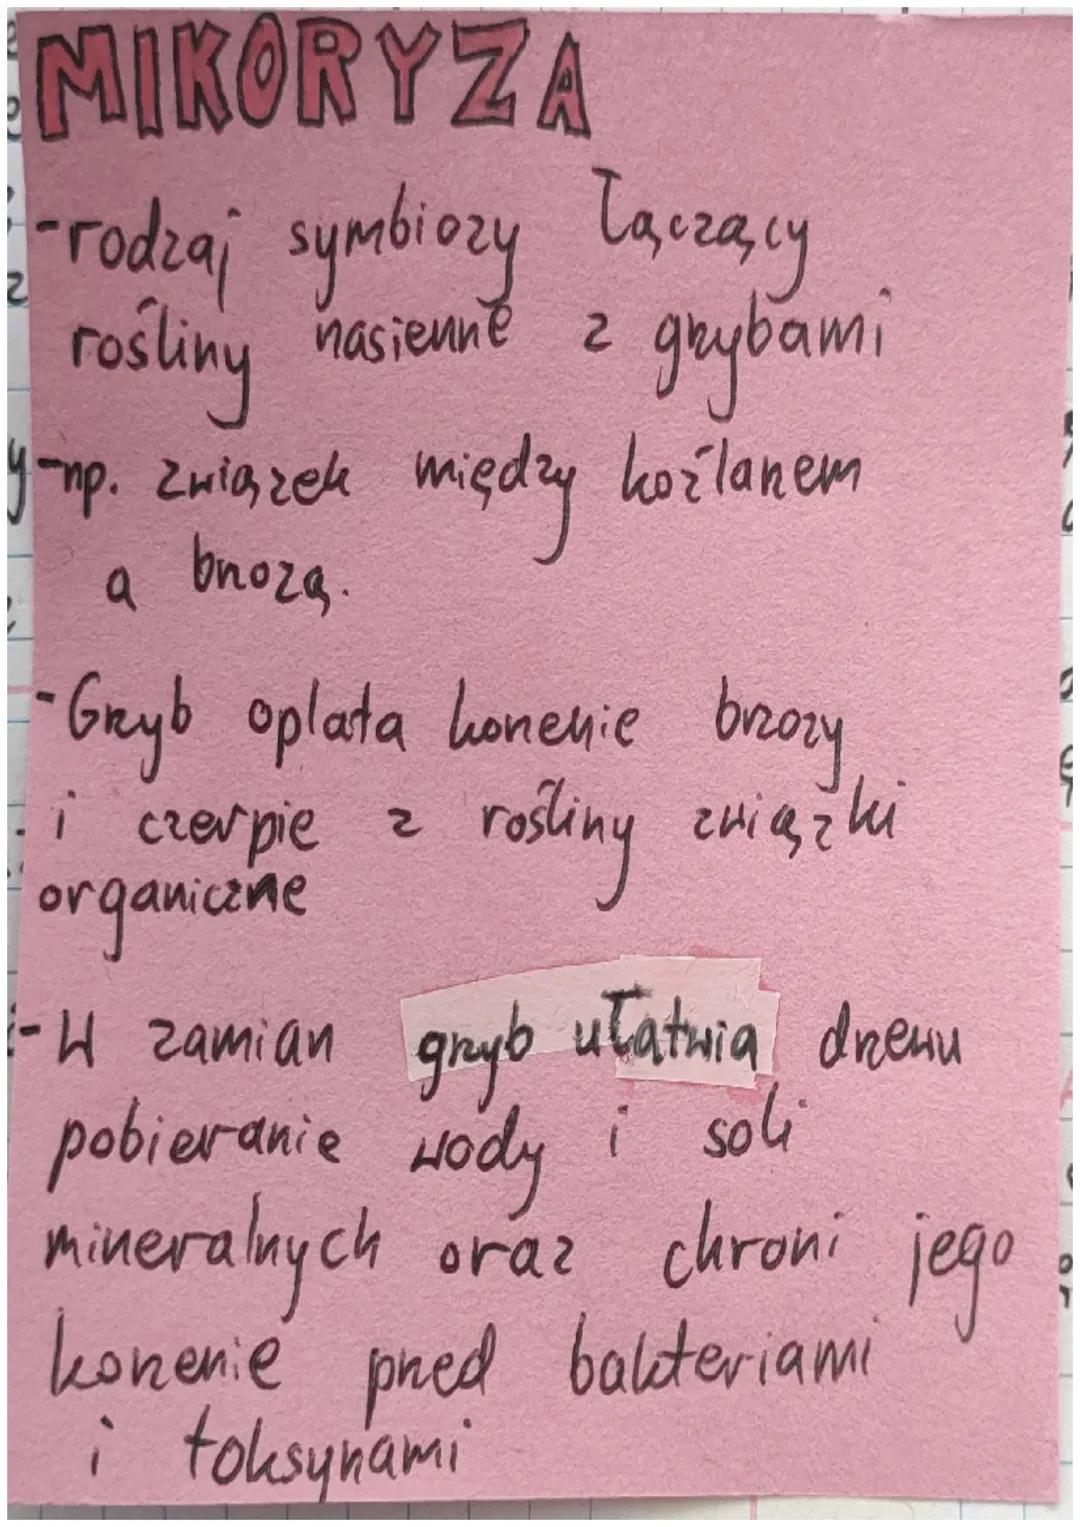 MIKORYZA
-rodzaj symbiozy łączący
rośliny nasienne z grzybami
-np. związek między koźlarzem
a brzozą.
-Grzyb oplata korzenie brzozy
i czerpie z rośliny związki
organiczne
-W zamian grzyb ułatwia drzewu
pobieranie wody i soli
mineralnych oraz chroni jego
korzenie przed bakteriami
i toksynami